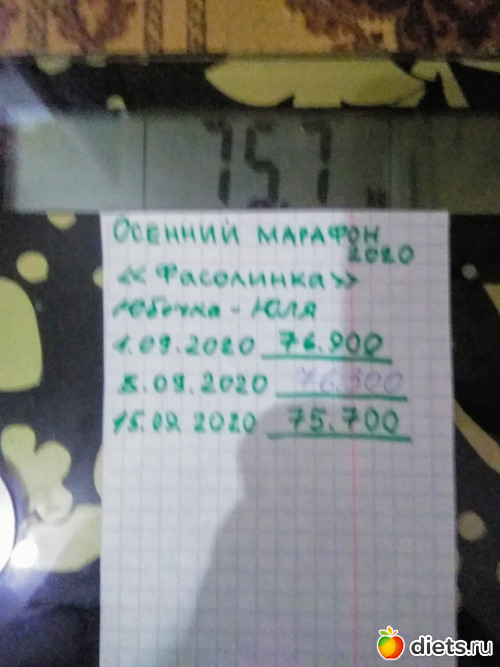 75.7
ОСЕННИЙ МАРАФОН
2020
«Фасолинка»
Юбочка - ЮЛЯ
1.09.2020 76.900
8.09.2020 76.300
15.09.2020 75.700
diets.ru